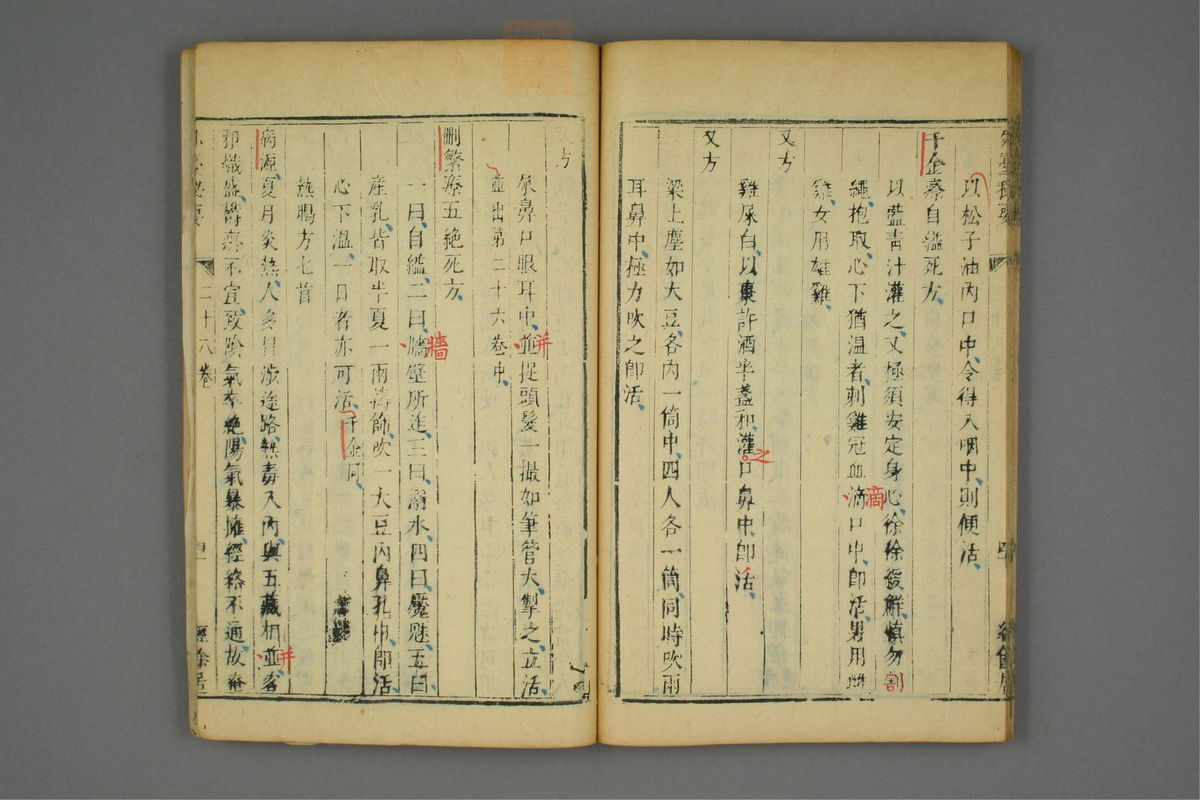 以松子油內口中令得入咽中則便活
千金療自縊死方
以藍青汁灌之又極須安定身心徐徐緩解慎勿割
繩抱取心下猶溫者刺雞冠血滴口中即活男用雌
滴
雞女用雄雞
又方
雞屎白以棗許酒半盞和灌口鼻中即活
之
又方
梁上塵如大豆各內一筒中四人各一筒同時吹兩
耳鼻中極力吹之即活
又方
尿鼻口眼耳中並捉頭髮一撮如筆管大掣之立活
并
並出第二十六卷中
刪繁療五絕死方
一曰自縊二曰墻壁所迮三曰溺水四曰魘魅五曰
牆
產乳皆取半夏一兩搗篩吹一大豆內鼻孔中即活
心下溫一日者亦可活千金同
熱暍方七首
病源夏月炎熱人多冒涉途路熱毒入內與五藏相並客
并
邪熾盛鬱瘀不宣致陰氣卒絕陽氣暴擁經絡不通故奄
二十八卷
經餘居